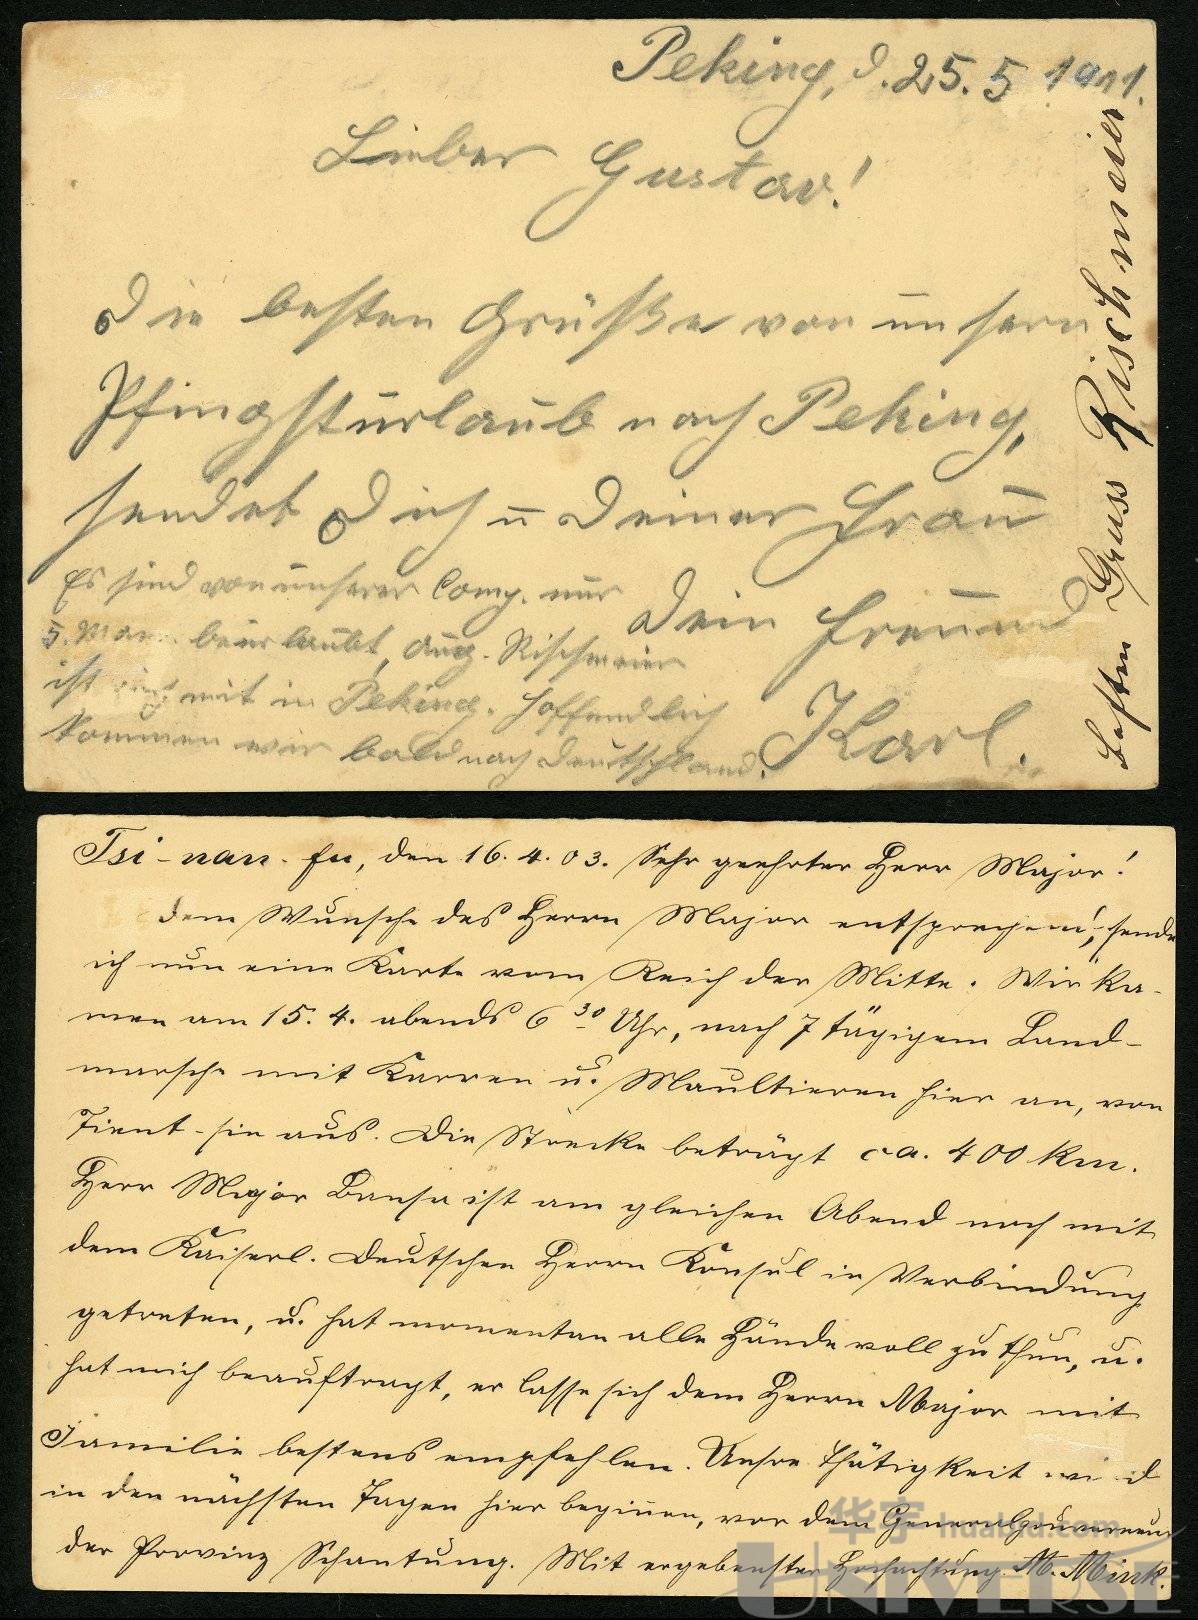 Peking, d. 25. 5 1901.
Lieber Gustav!
Die besten Grüße von unsern
Pfingsturlaub nach Peking,
sendet Dich u Deiner Frau
Dein Freuund
Karl.
Es sind von unserer Comp. nur
5. Mann beurlaubt, Aug. Rischmeier
ist mit in Peking. Hoffendlich
kommen wir bald nach Deutschland.
Besten Gruss Rischmeier
Tsi-nan-fu, den 16. 4. 03. Sehr geehrter Herr Major!
Dem Wunsche des Herrn Major entsprechend, sende
ich nun eine Karte vom Reich der Mitte. Wir ka-
men am 15. 4. abends 6 30 Uhr, nach 7 tägigem Land-
marsche mit Karren u. Maultieren hier an, von
Tient-sin aus. Die Strecke beträgt ca. 400 km.
Herr Major Bansa ist am gleichen Abend noch mit
dem Kaiserl. Deutschen Herrn Konsul in Verbindung
getreten, u. hat momentan alle Hände voll zu thun, u.
hat mich beauftragt, er lasse sich dem Herrn Major mit
Familie bestens empfehlen. Unsre Thätigkeit wird
in den nächsten Tagen hier beginnen, vor dem Generalgouverneur
der Provinz Schantung. Mit ergebenster Hochachtung M. Mink.
华宇 huabid.com
UNIVERSE